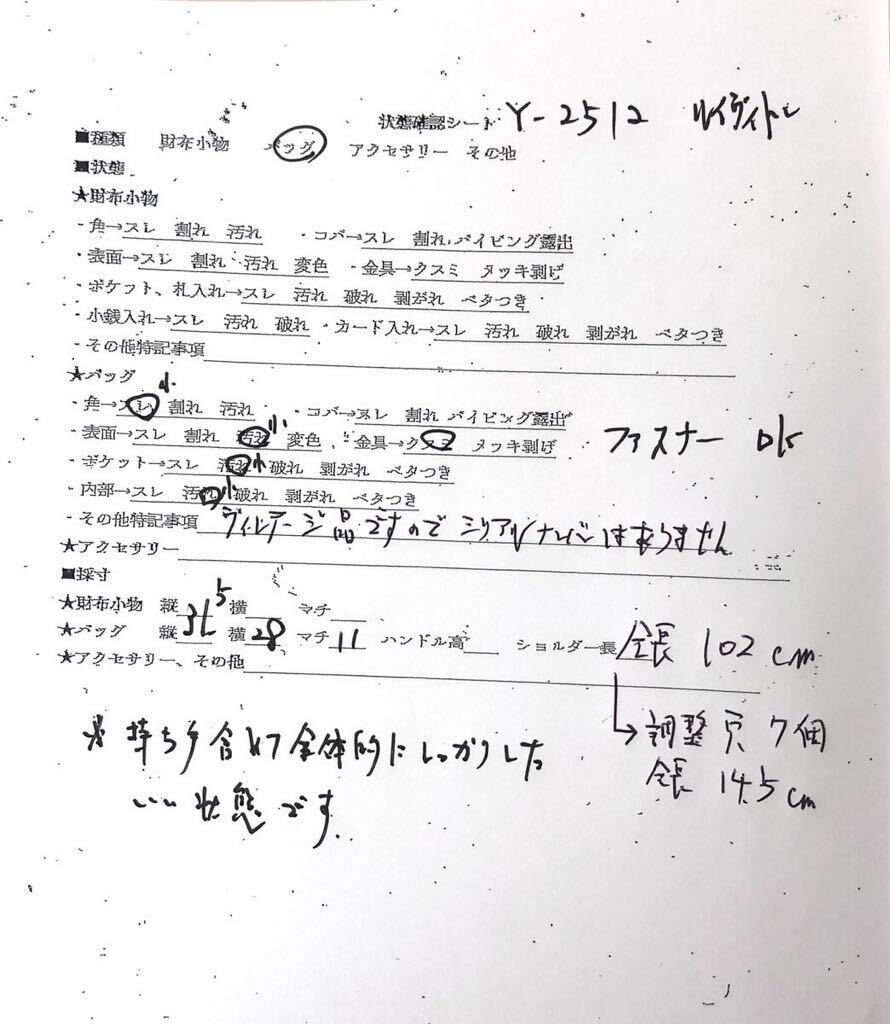 状態確認シート Y-2512 ルイヴィトン
■種類 財布小物 バッグ アクセサリー その他
■状態
★財布小物
・角→スレ 割れ 汚れ ・コバ→スレ 割れ パイピング露出
・表面→スレ 割れ 汚れ 変色 ・金具→クスミ メッキ剥げ
・ポケット、札入れ→スレ 汚れ 破れ 剥がれ ベタつき
・小銭入れ→スレ 汚れ 破れ ・カード入れ→スレ 汚れ 破れ 剥がれ ベタつき
・その他特記事項
★バッグ
・角→スレ小 割れ 汚れ ・コバ→スレ 割れ パイピング露出
・表面→スレ 割れ 汚れ小 変色 ・金具→クスミ メッキ剥げ ファスナー OK
・ポケット→スレ 汚れ小 破れ 剥がれ ベタつき
・内部→スレ 汚れ小 破れ 剥がれ ベタつき
・その他特記事項 ヴィンテージ品ですので シリアルナンバーはありません
★アクセサリー
■採寸
★財布小物 縦 横 マチ
★バッグ 縦 横28 マチ11 ハンドル高 ショルダー長 全長 102cm
★アクセサリー、その他
→調整穴 7個
全長 145cm
※ 持ち手含めて全体的にしっかりした
いい状態です。